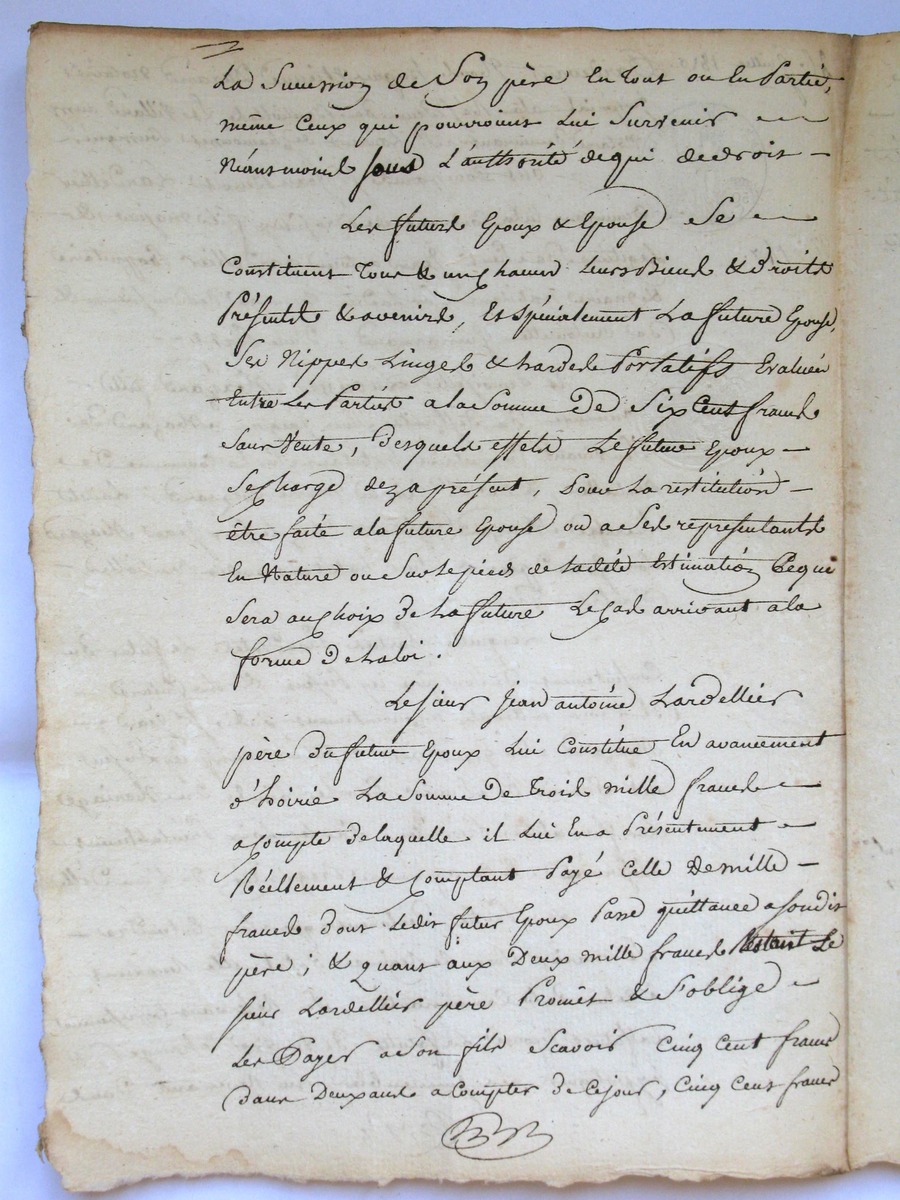 La Succession de Son père En Tout ou En Partie,
même Ceux qui pourroient Lui Survenir
Néantmoins sous L'authorité de qui de droit
Les futurs Epoux & Epouse Se
Constituent Tous & un chacun Leurs Biens & Droits
Présents & avenirs, Et Spécialement La future Epouse,
Ses Nippes Linges & hardes Portatifs Evalués
Entre Les Parties a la Somme De Six Cent francs
Sans Vente, Desquels effets Le future Epoux
Se charge dez a présent, Pour La restitution
être faite a la future Epouse ou a Ses représentants
En Nature ou Sur Le pieds de La dite Estimation Ce qui
Sera au choix De La future Le Cas arrivant a la
forme De La loi.
Le sieur Jean antoine Lardellier
père Du future Epoux Lui Constitue En avancement
d'hoirie La Somme De Trois mille francs
a Compte De laquelle il Lui En a Présentement
Réellement & Comptant Payé Celle De mille
francs dont Le dit futur Epoux Passe quittance a son dit
père; & quant aux Deux mille francs Restant Le
sieur Lardellier père Promet & S'oblige
Les Payer a Son fils Scavoir Cinq Cent francs
dans Deux ans a Compter De Ce jour, Cinq Cent francs